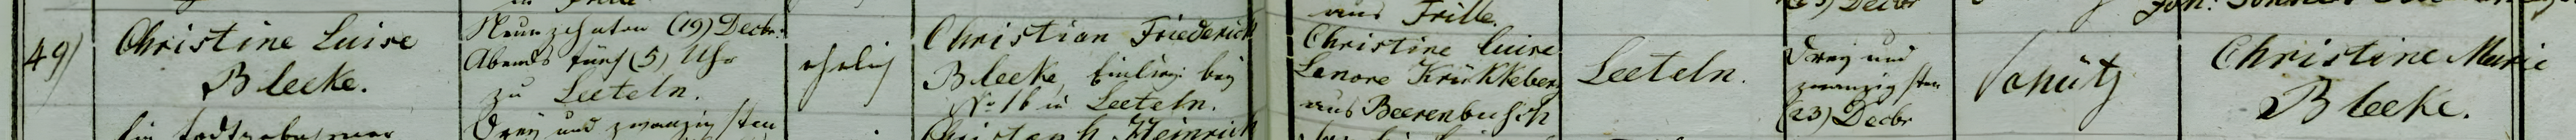 aus Frille.
49) Christine Luise
Bleeke.
Neunzehnten (19) Decbr:
Abends fünf (5) Uhr
zu Leeteln.
ehelich
Christian Friederich
Bleeke, Einlieg: bey
No 16 in Leeteln.
Christine Luise
Lenore Krückkeberg
aus Beerenbusch
Leeteln.
Drey und
zwanzigsten
(23) Decbr
Schütz
Christine Marie
Bleeke.
Drey und zwanzigsten
Christoph Heinrich